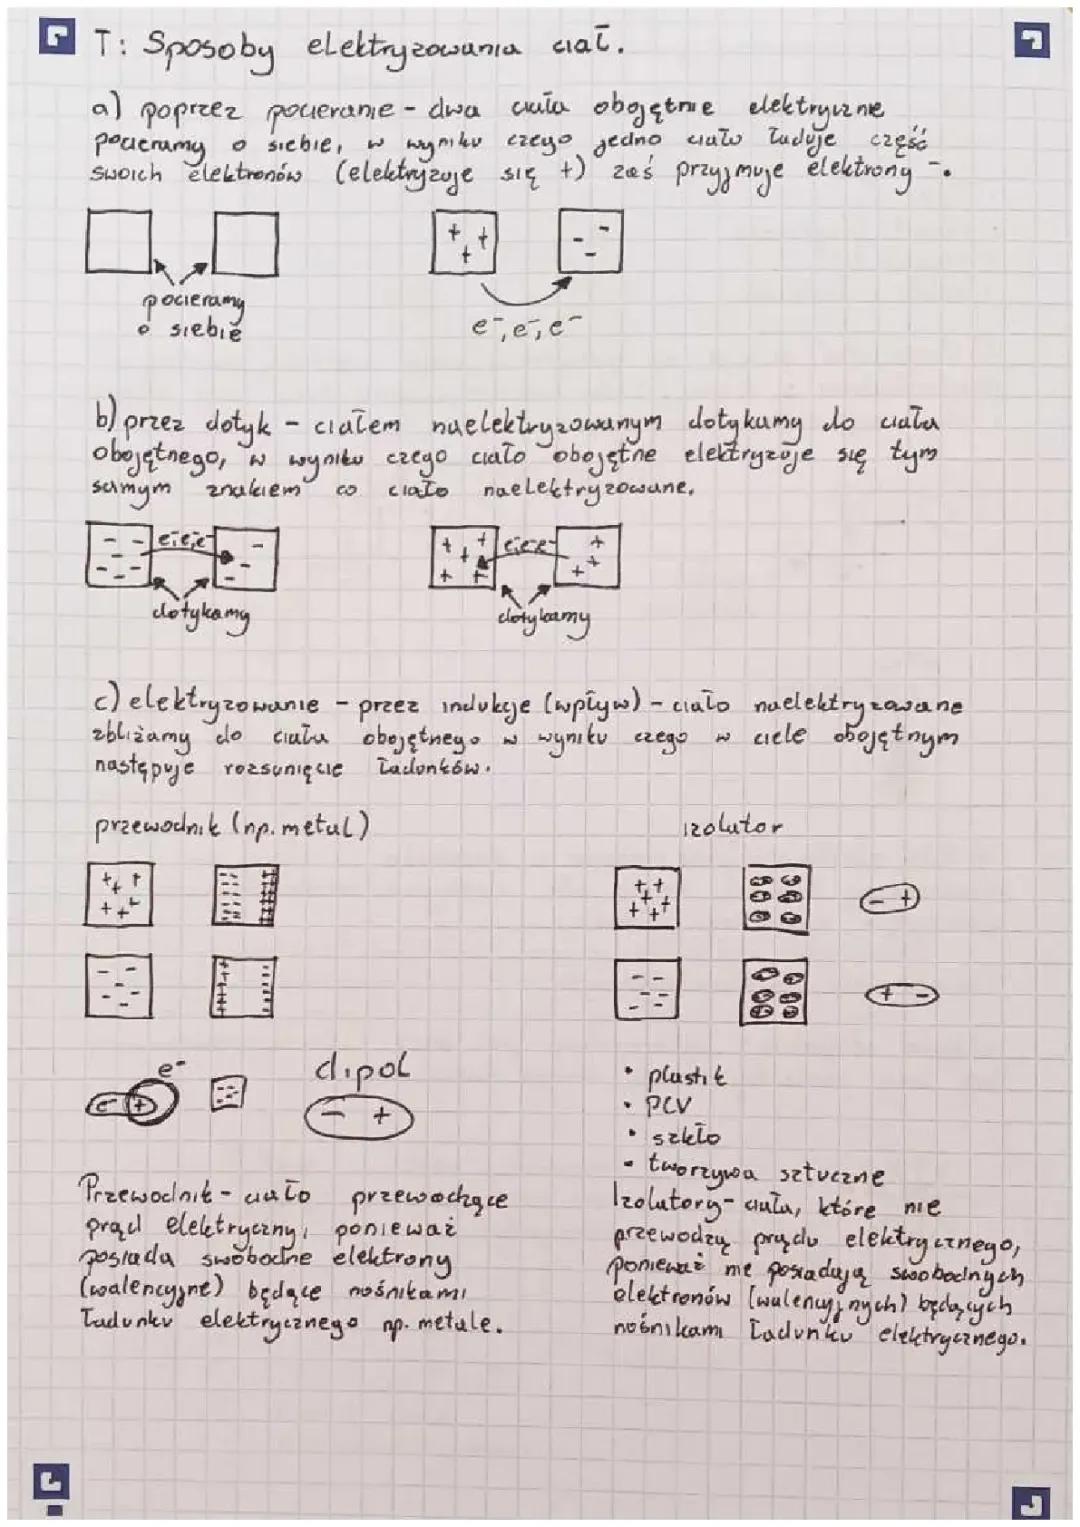 T: Sposoby elektryzowania ciał.
a) poprzez pocieranie - dwa ciała obojętnie elektryczne
pocieramy o siebie, w wyniku czego jedno ciało ładuje część
swoich elektronów (elektryzuje się +) zaś przyjmuje elektrony -.
+ + +
- - -
pocieramy
o siebie
e⁻, e⁻, e⁻
b) przez dotyk - ciałem naelektryzowanym dotykamy do ciała
obojętnego, w wyniku czego ciało obojętne elektryzuje się tym
samym znakiem co ciało naelektryzowane.
e⁻,e⁻,e⁻
e⁻,e⁻,e⁻
dotykamy
dotykamy
c) elektryzowanie - przez indukcje (wpływ) - ciało naelektryzowane
zbliżamy do ciała obojętnego w wyniku czego w ciele obojętnym
następuje rozsunięcie ładunków.
przewodnik (np. metal)
izolator
- +
+ -
e⁻
dipol
- +
• plastik
• PCV
• szkło
• tworzywa sztuczne
Przewodnik - ciało przewodzące
prąd elektryczny, ponieważ
posiada swobodne elektrony
(walencyjne) będące nośnikami
ładunku elektrycznego np. metale.
Izolatory - ciała, które nie
przewodzą prądu elektrycznego,
ponieważ nie posiadają swobodnych
elektronów (walencyjnych) będących
nośnikami ładunku elektrycznego.